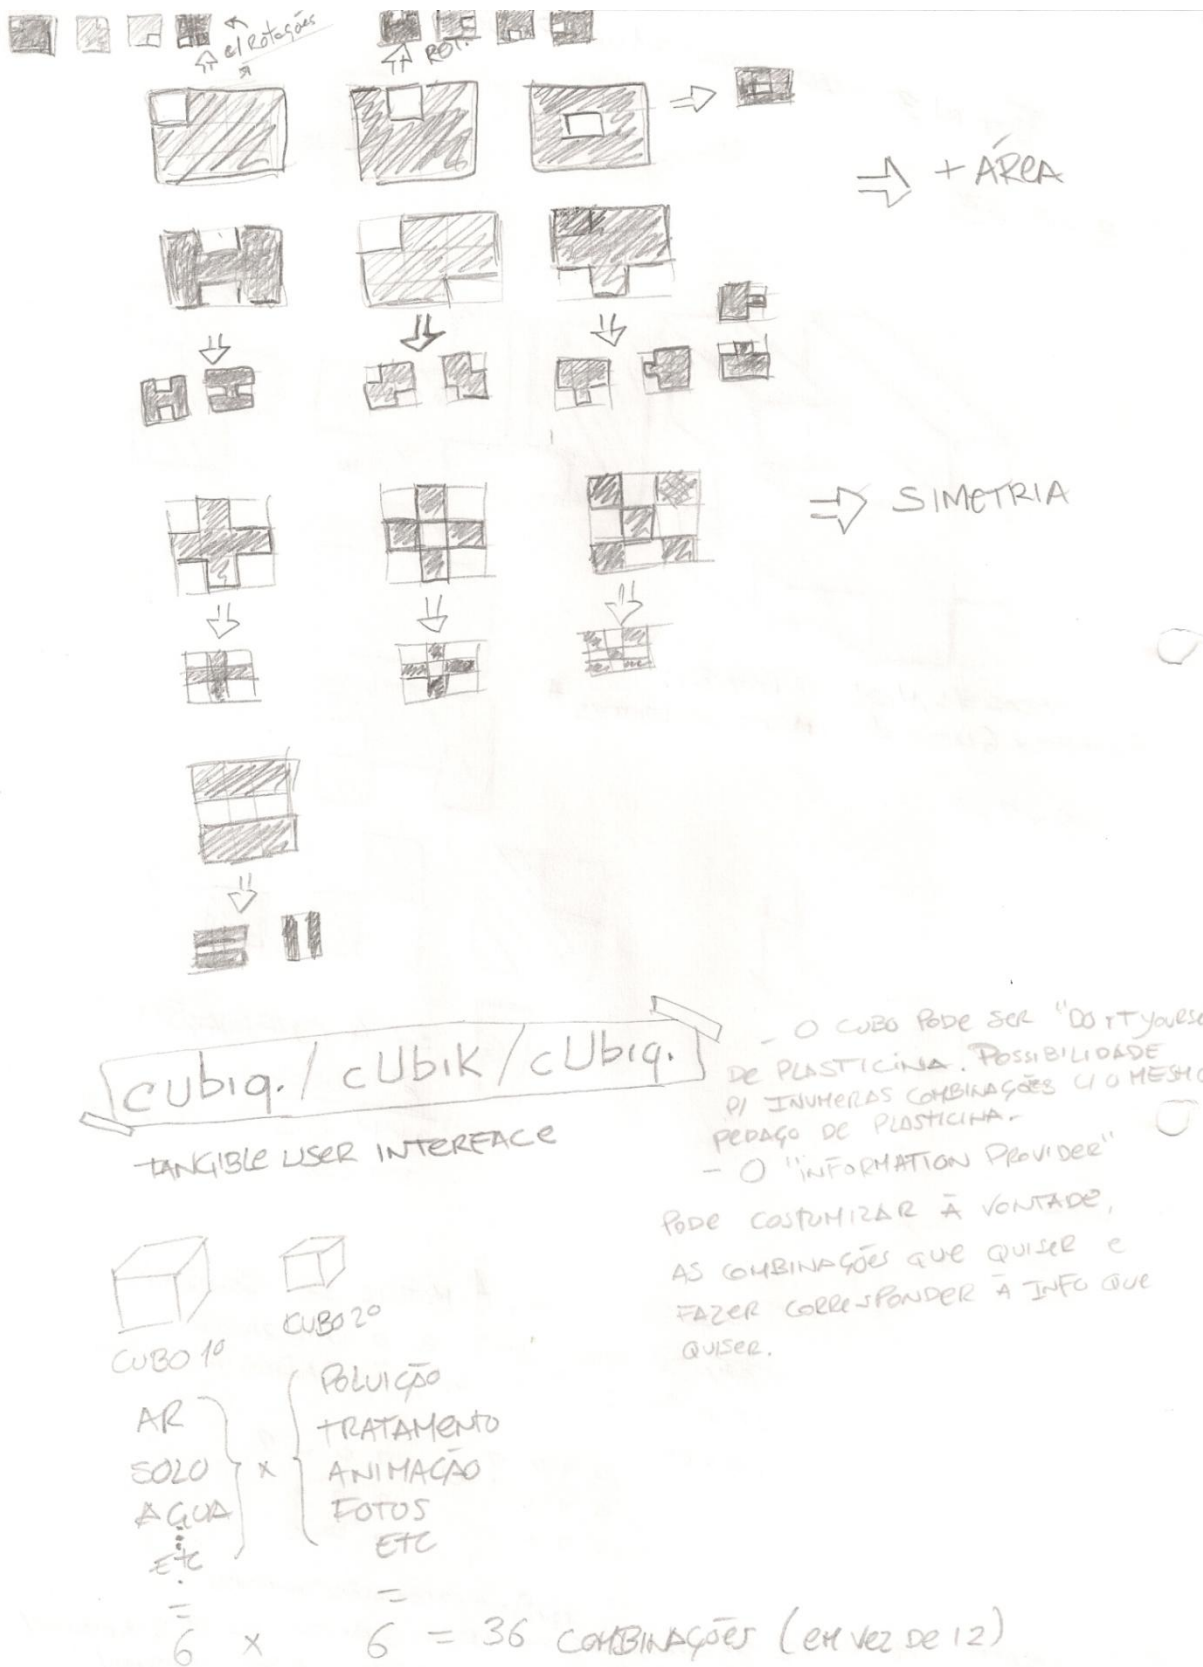 c/ Rotações
ROT.
+ ÁREA
SIMETRIA
cUbiq. / cUbiK / cUbiq.
TANGIBLE USER INTERFACE
- O CUBO PODE SER "DO IT YOURSE
DE PLASTICINA. POSSIBILIDADE
P/ INUMERAS COMBINAÇÕES C/ O MESMO
PEDAÇO DE PLASTICINA.
- O "INFORMATION PROVIDER"
PODE COSTUMIZAR À VONTADE,
AS COMBINAÇÕES QUE QUISER E
FAZER CORRESPONDER À INFO QUE
QUISER.
CUBO 1º
CUBO 2º
AR
SOLO
AGUA
ETC
x
POLUIÇÃO
TRATAMENTO
ANIMAÇÃO
FOTOS
ETC
= =
6 x 6 = 36 COMBINAÇÕES (EM VEZ DE 12)